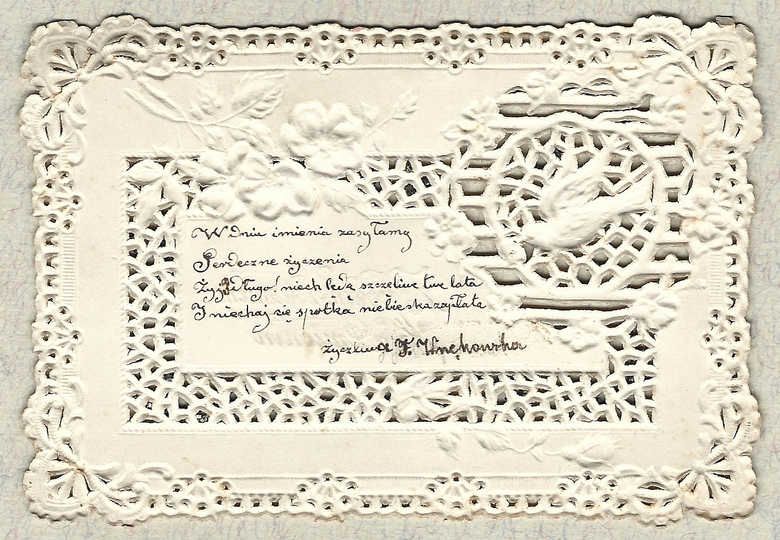 W dniu imienia zasyłamy
Serdeczne życzenia
Żyj Długo! niech będą szczęliwe twe lata
I niechaj się spotka niebieska zapłata
życzliwa F. Wnękowska